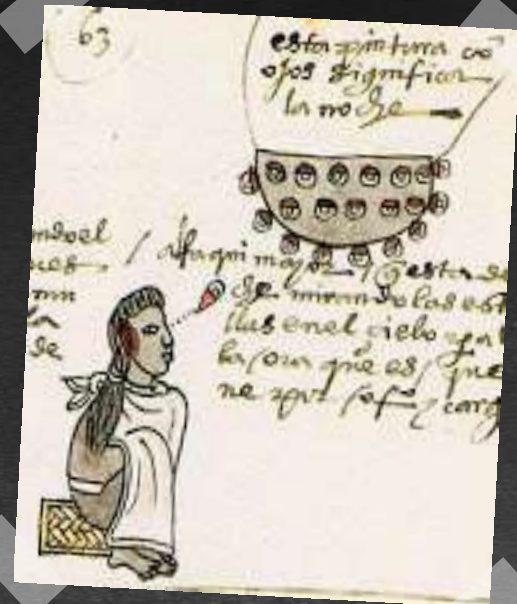 63
esta pintura cõ
ojos significa
la noche
ndo el
ues
mn
la
de
/ alfaqui mayor / q̃ esta de
che mirando las est
llas en el cielo para
la ora que es / que
ne por ofo y carg